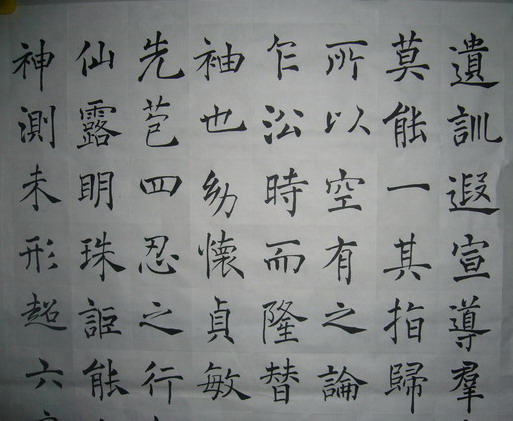 遺訓遐宣導羣
莫能一其指歸
所以空有之論
乍沿時而隆替
袖也幼懷貞敏
先苞四忍之行
仙露明珠詎能
神測未形超六